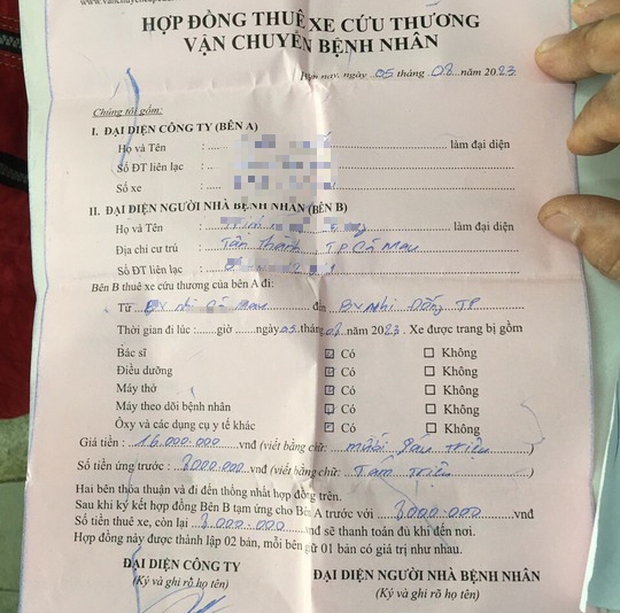 HỢP ĐỒNG THUÊ XE CỨU THƯƠNG
VẬN CHUYỂN BỆNH NHÂN
Hôm nay, ngày 05 tháng 08 năm 2023
Chúng tôi gồm:
I. ĐẠI DIỆN CÔNG TY (BÊN A)
Họ và Tên : làm đại diện
Số ĐT liên lạc :
Số xe :
II. ĐẠI DIỆN NGƯỜI NHÀ BỆNH NHÂN (BÊN B)
Họ và Tên : làm đại diện
Địa chỉ cư trú : Tân Thành TP Cà Mau
Số ĐT liên lạc :
Bên B thuê xe cứu thương của bên A đi:
Từ BV nhi Cà Mau đến BV Nhi Đồng TP
Thời gian đi lúc : giờ ngày 05 tháng 08 năm 2023. Xe được trang bị gồm
Bác sĩ Có Không
Điều dưỡng Có Không
Máy thở Có Không
Máy theo dõi bệnh nhân Có Không
Ôxy và các dụng cụ y tế khác Có Không
Giá tiền : 16.000.000 vnđ (viết bằng chữ: mười sáu triệu )
Số tiền ứng trước : 8000.000 vnđ (viết bằng chữ: Tam Triệu )
Hai bên thỏa thuận và đi đến thống nhất hợp đồng trên.
Sau khi ký kết hợp đồng Bên B tạm ứng cho Bên A trước với 8000.000 vnđ
Số tiền thuê xe, còn lại 8.000.000 vnđ sẽ thanh toán đủ khi đến nơi.
Hợp đồng này được thành lập 02 bản, mỗi bên giữ 01 bản có giá trị như nhau.
ĐẠI DIỆN CÔNG TY ĐẠI DIỆN NGƯỜI NHÀ BỆNH NHÂN
(Ký và ghi rõ họ tên) (Ký và ghi rõ họ tên)